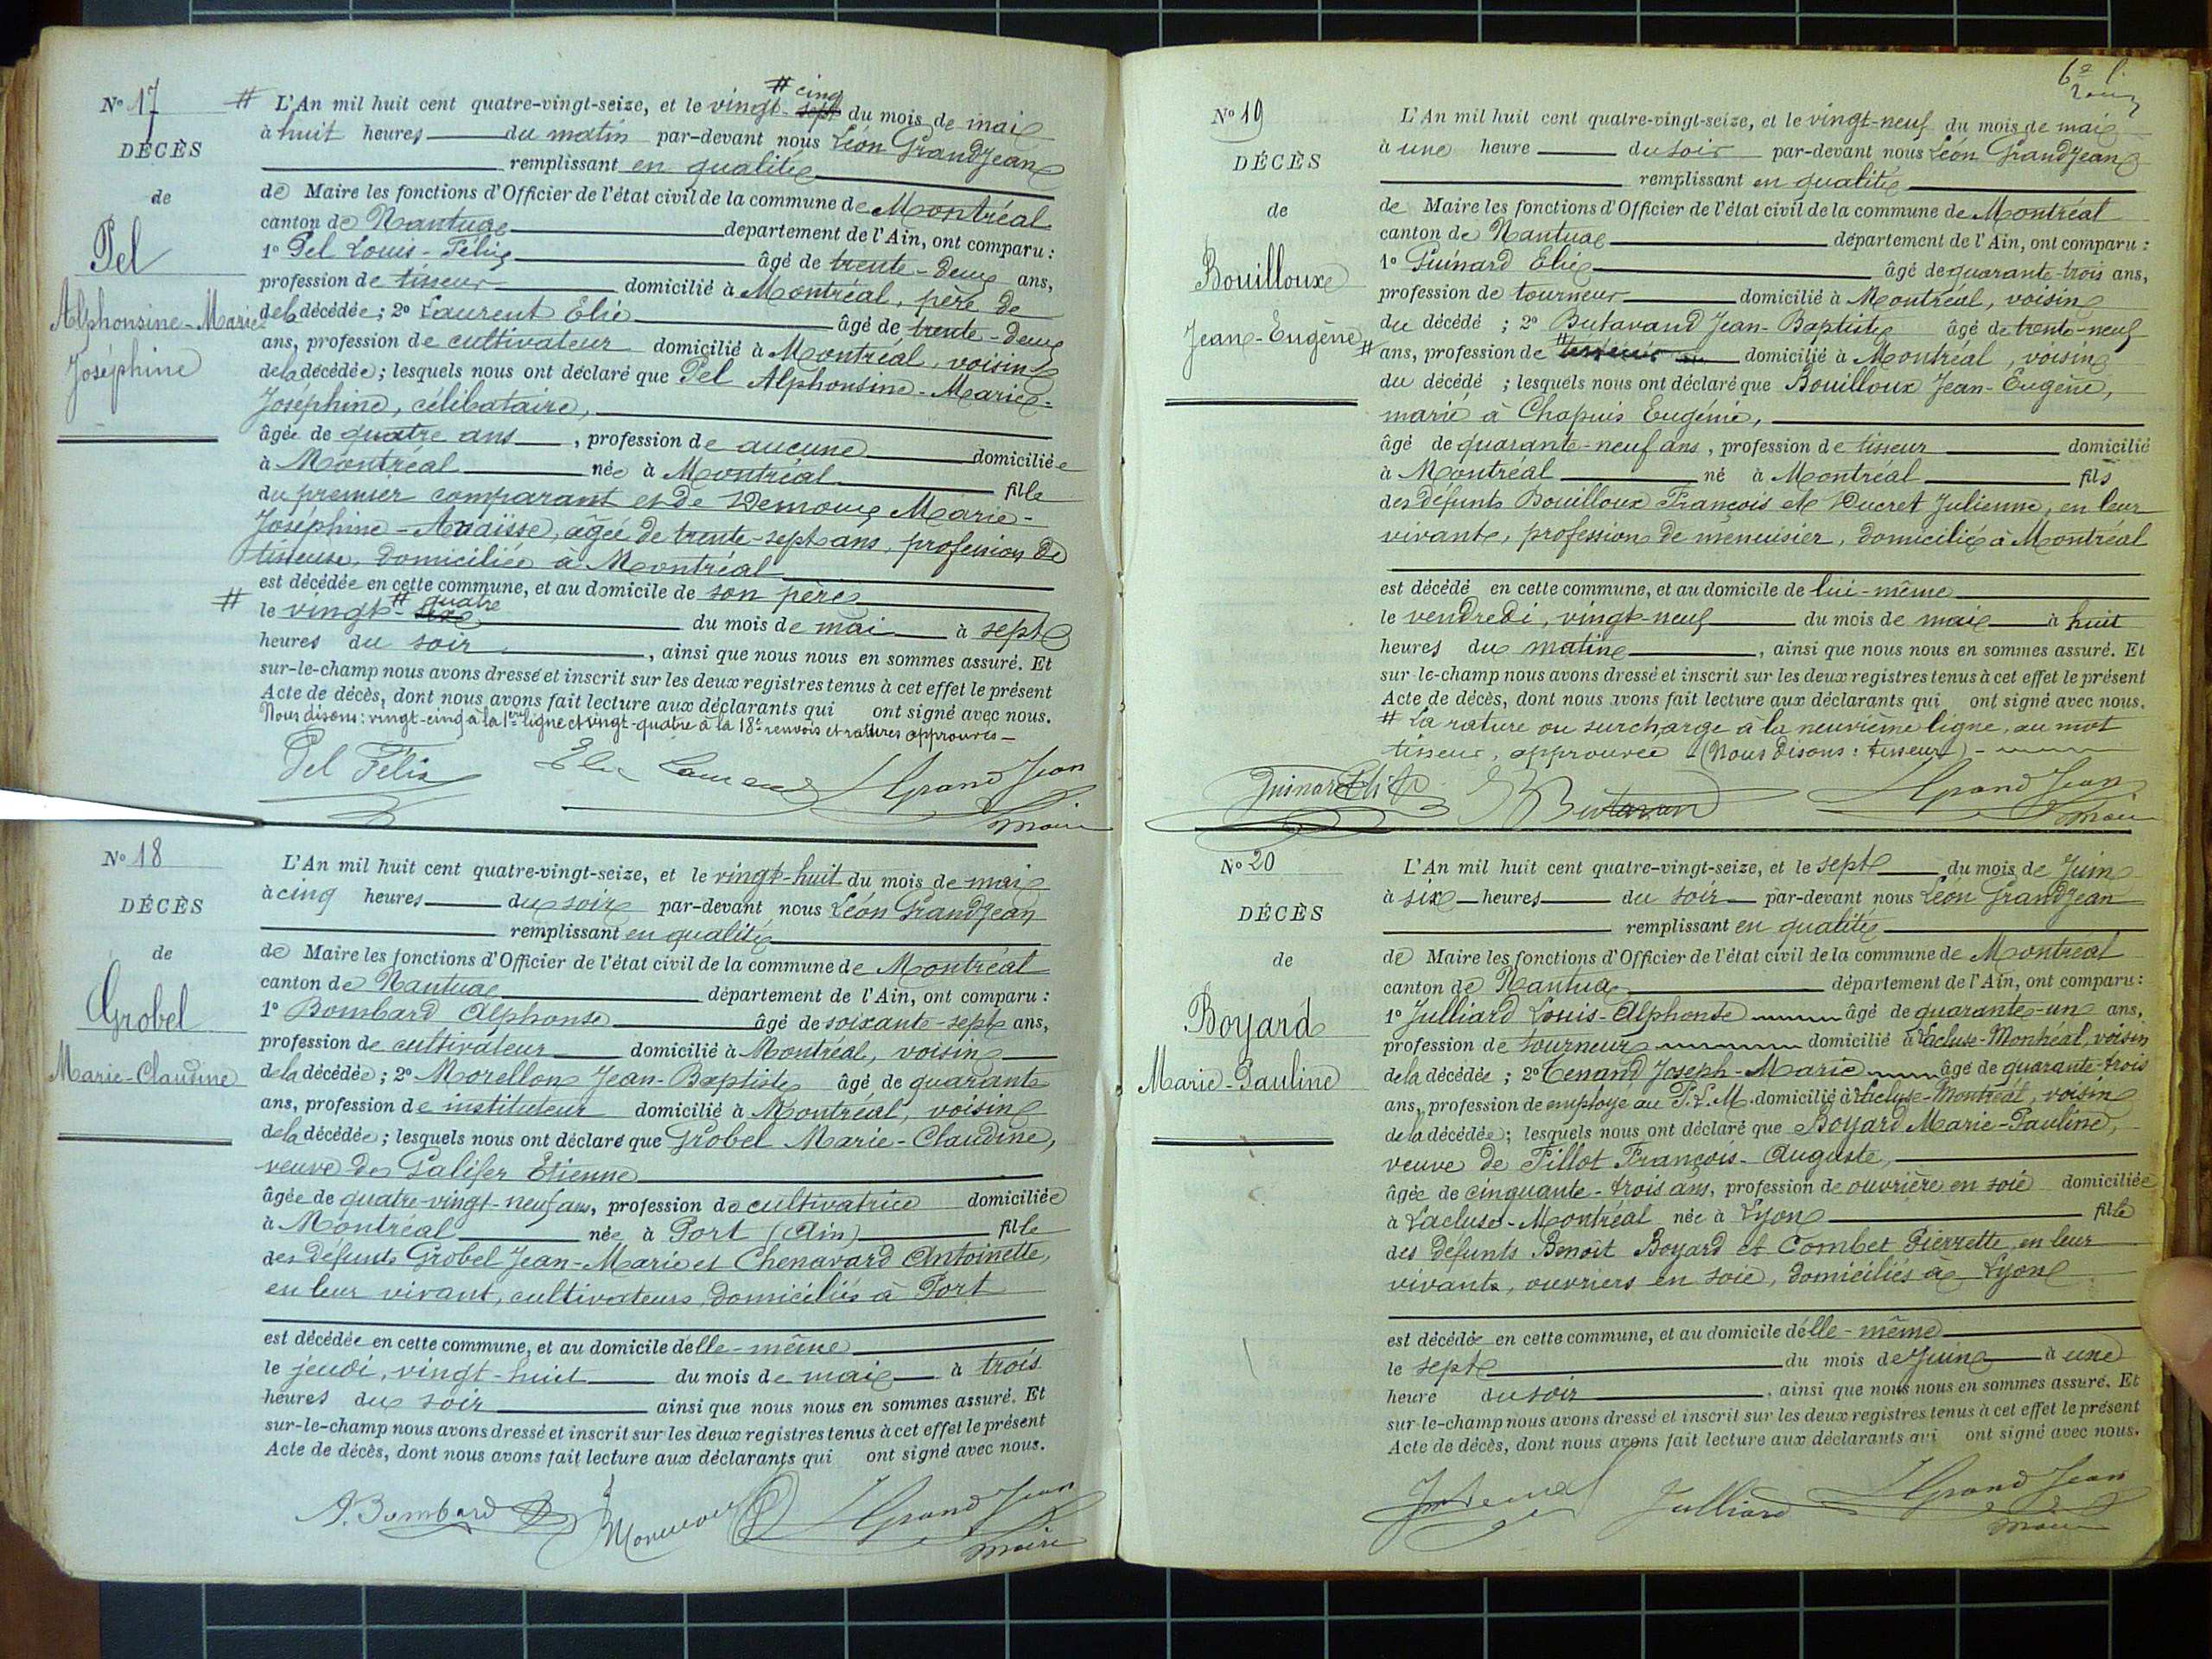 N° 17
DÉCÈS
de
Pel
Alphonsine-Marie
Joséphine
# cinq
# L'An mil huit cent quatre-vingt-seize, et le vingt-sept du mois de mai
à huit heures du matin par-devant nous Léon Grandjean
remplissant en qualité
de Maire les fonctions d'Officier de l'état civil de la commune de Montréal
canton de Nantua département de l'Ain, ont comparu :
1° Pel Louis-Félix âgé de trente-deux ans,
profession de tisseur domicilié à Montréal, père de
de la décédée ; 2° Laurent Elie âgé de trente-deux
ans, profession de cultivateur domicilié à Montréal, voisin
de la décédée ; lesquels nous ont déclaré que Pel Alphonsine-Marie-
Joséphine, célibataire,
âgée de quatre ans, profession de aucune domiciliée
à Montréal née à Montréal fille
du premier comparant et de Demoux Marie-
Joséphine-Anaïsse, âgée de trente-sept ans, profession de
tisseuse, domiciliée à Montréal
est décédée en cette commune, et au domicile de son père
# quatre
# le vingt- du mois de mai à sept
heures du soir, ainsi que nous nous en sommes assuré. Et
sur-le-champ nous avons dressé et inscrit sur les deux registres tenus à cet effet le présent
Acte de décès, dont nous avons fait lecture aux déclarants qui ont signé avec nous.
Nous disons : vingt-cinq à la 1ère ligne et vingt-quatre à la 18e renvois et ratures approuvés
Pel Félix Elie Laurent LGrandJean
Maire
N° 18
DÉCÈS
de
Grobel
Marie-Claudine
L'An mil huit cent quatre-vingt-seize, et le vingt-huit du mois de mai
à cinq heures du soir par-devant nous Léon Grandjean
remplissant en qualité
de Maire les fonctions d'Officier de l'état civil de la commune de Montréal
canton de Nantua département de l'Ain, ont comparu :
1° Bombard Alphonse âgé de soixante-sept ans,
profession de cultivateur domicilié à Montréal, voisin
de la décédée ; 2° Morellon Jean-Baptiste âgé de quarante
ans, profession de instituteur domicilié à Montréal, voisin
de la décédée ; lesquels nous ont déclaré que Grobel Marie-Claudine,
veuve de Galifer Etienne
âgée de quatre-vingt-neuf ans, profession de cultivatrice domiciliée
à Montréal née à Port (Ain) fille
des défunts Grobel Jean-Marie et Chenavard Antoinette,
en leur vivant, cultivateurs, domiciliés à Port
est décédée en cette commune, et au domicile d'elle-même
le jeudi, vingt-huit du mois de mai à trois
heures du soir ainsi que nous nous en sommes assuré. Et
sur-le-champ nous avons dressé et inscrit sur les deux registres tenus à cet effet le présent
Acte de décès, dont nous avons fait lecture aux déclarants qui ont signé avec nous.
A. Bombard LGrandJean
Maire
6e
N° 19
DÉCÈS
de
Bouilloux
Jean-Eugène
L'An mil huit cent quatre-vingt-seize, et le vingt-neuf du mois de mai
à une heure du soir par-devant nous Léon Grandjean
remplissant en qualité
de Maire les fonctions d'Officier de l'état civil de la commune de Montréal
canton de Nantua département de l'Ain, ont comparu :
1° Guinard Elie âgé de quarante-trois ans,
profession de tourneur domicilié à Montréal, voisin
du décédé ; 2° Butavand Jean-Baptiste âgé de trente-neuf
# ans, profession de # tisseur domicilié à Montréal, voisin
du décédé ; lesquels nous ont déclaré que Bouilloux Jean-Eugène,
marié à Chapuis Eugénie,
âgé de quarante-neuf ans, profession de tisseur domicilié
à Montréal né à Montréal fils
des défunts Bouilloux François et Ducret Julienne, en leur
vivants, profession de menuisier, domiciliés à Montréal
est décédé en cette commune, et au domicile de lui-même
le vendredi, vingt-neuf du mois de mai à huit
heures du matin, ainsi que nous nous en sommes assuré. Et
sur-le-champ nous avons dressé et inscrit sur les deux registres tenus à cet effet le présent
Acte de décès, dont nous avons fait lecture aux déclarants qui ont signé avec nous.
# La rature ou surcharge à la neuvième ligne, au mot
tisseur, approuvée (Nous disons : tisseur) -
Guinard Elie Butavan LGrandJean
Maire
N° 20
DÉCÈS
de
Boyard
Marie-Pauline
L'An mil huit cent quatre-vingt-seize, et le sept du mois de Juin
à six heures du soir par-devant nous Léon Grandjean
remplissant en qualité
de Maire les fonctions d'Officier de l'état civil de la commune de Montréal
canton de Nantua département de l'Ain, ont comparu :
1° Julliard Louis-Alphonse âgé de quarante-un ans,
profession de tourneur domicilié à Lacluse-Montréal, voisin
de la décédée ; 2° Tenand Joseph-Marie âgé de quarante-trois
ans, profession de employé au P.L.M. domicilié à Lacluse-Montréal, voisin
de la décédée ; lesquels nous ont déclaré que Boyard Marie-Pauline,
veuve de Pillot François-Auguste,
âgée de cinquante-trois ans, profession de ouvrière en soie domiciliée
à Lacluse-Montréal née à Lyon fille
des défunts Benoît Boyard et Combet Pierrette, en leur
vivants, ouvriers en soie, domiciliés à Lyon
est décédée en cette commune, et au domicile d'elle-même
le sept du mois de Juin à une
heure du soir, ainsi que nous nous en sommes assuré. Et
sur-le-champ nous avons dressé et inscrit sur les deux registres tenus à cet effet le présent
Acte de décès, dont nous avons fait lecture aux déclarants qui ont signé avec nous.
Julliard LGrandJean
Maire